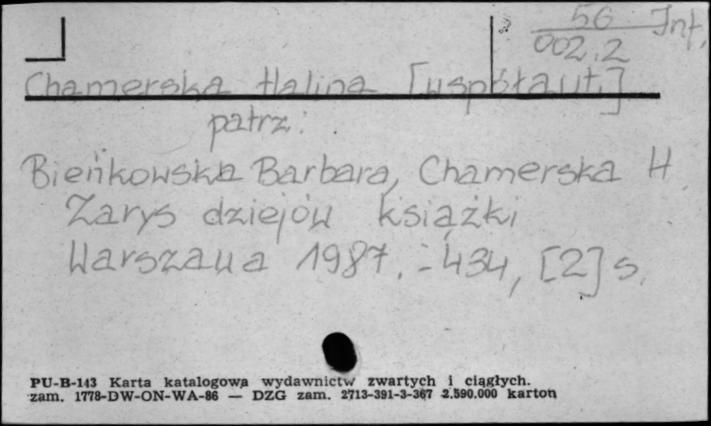 56 Inf.
002.2
Chamerska Halina [współaut.]
patrz:
Bieńkowska Barbara, Chamerska H.
Zarys dziejów książki
Warszawa 1987. - 434, [2] s.
PU-B-143 Karta katalogowa wydawnictw zwartych i ciągłych.
zam. 1778-DW-ON-WA-86 — DZG zam. 2713-391-3-367 2.590.000 karton